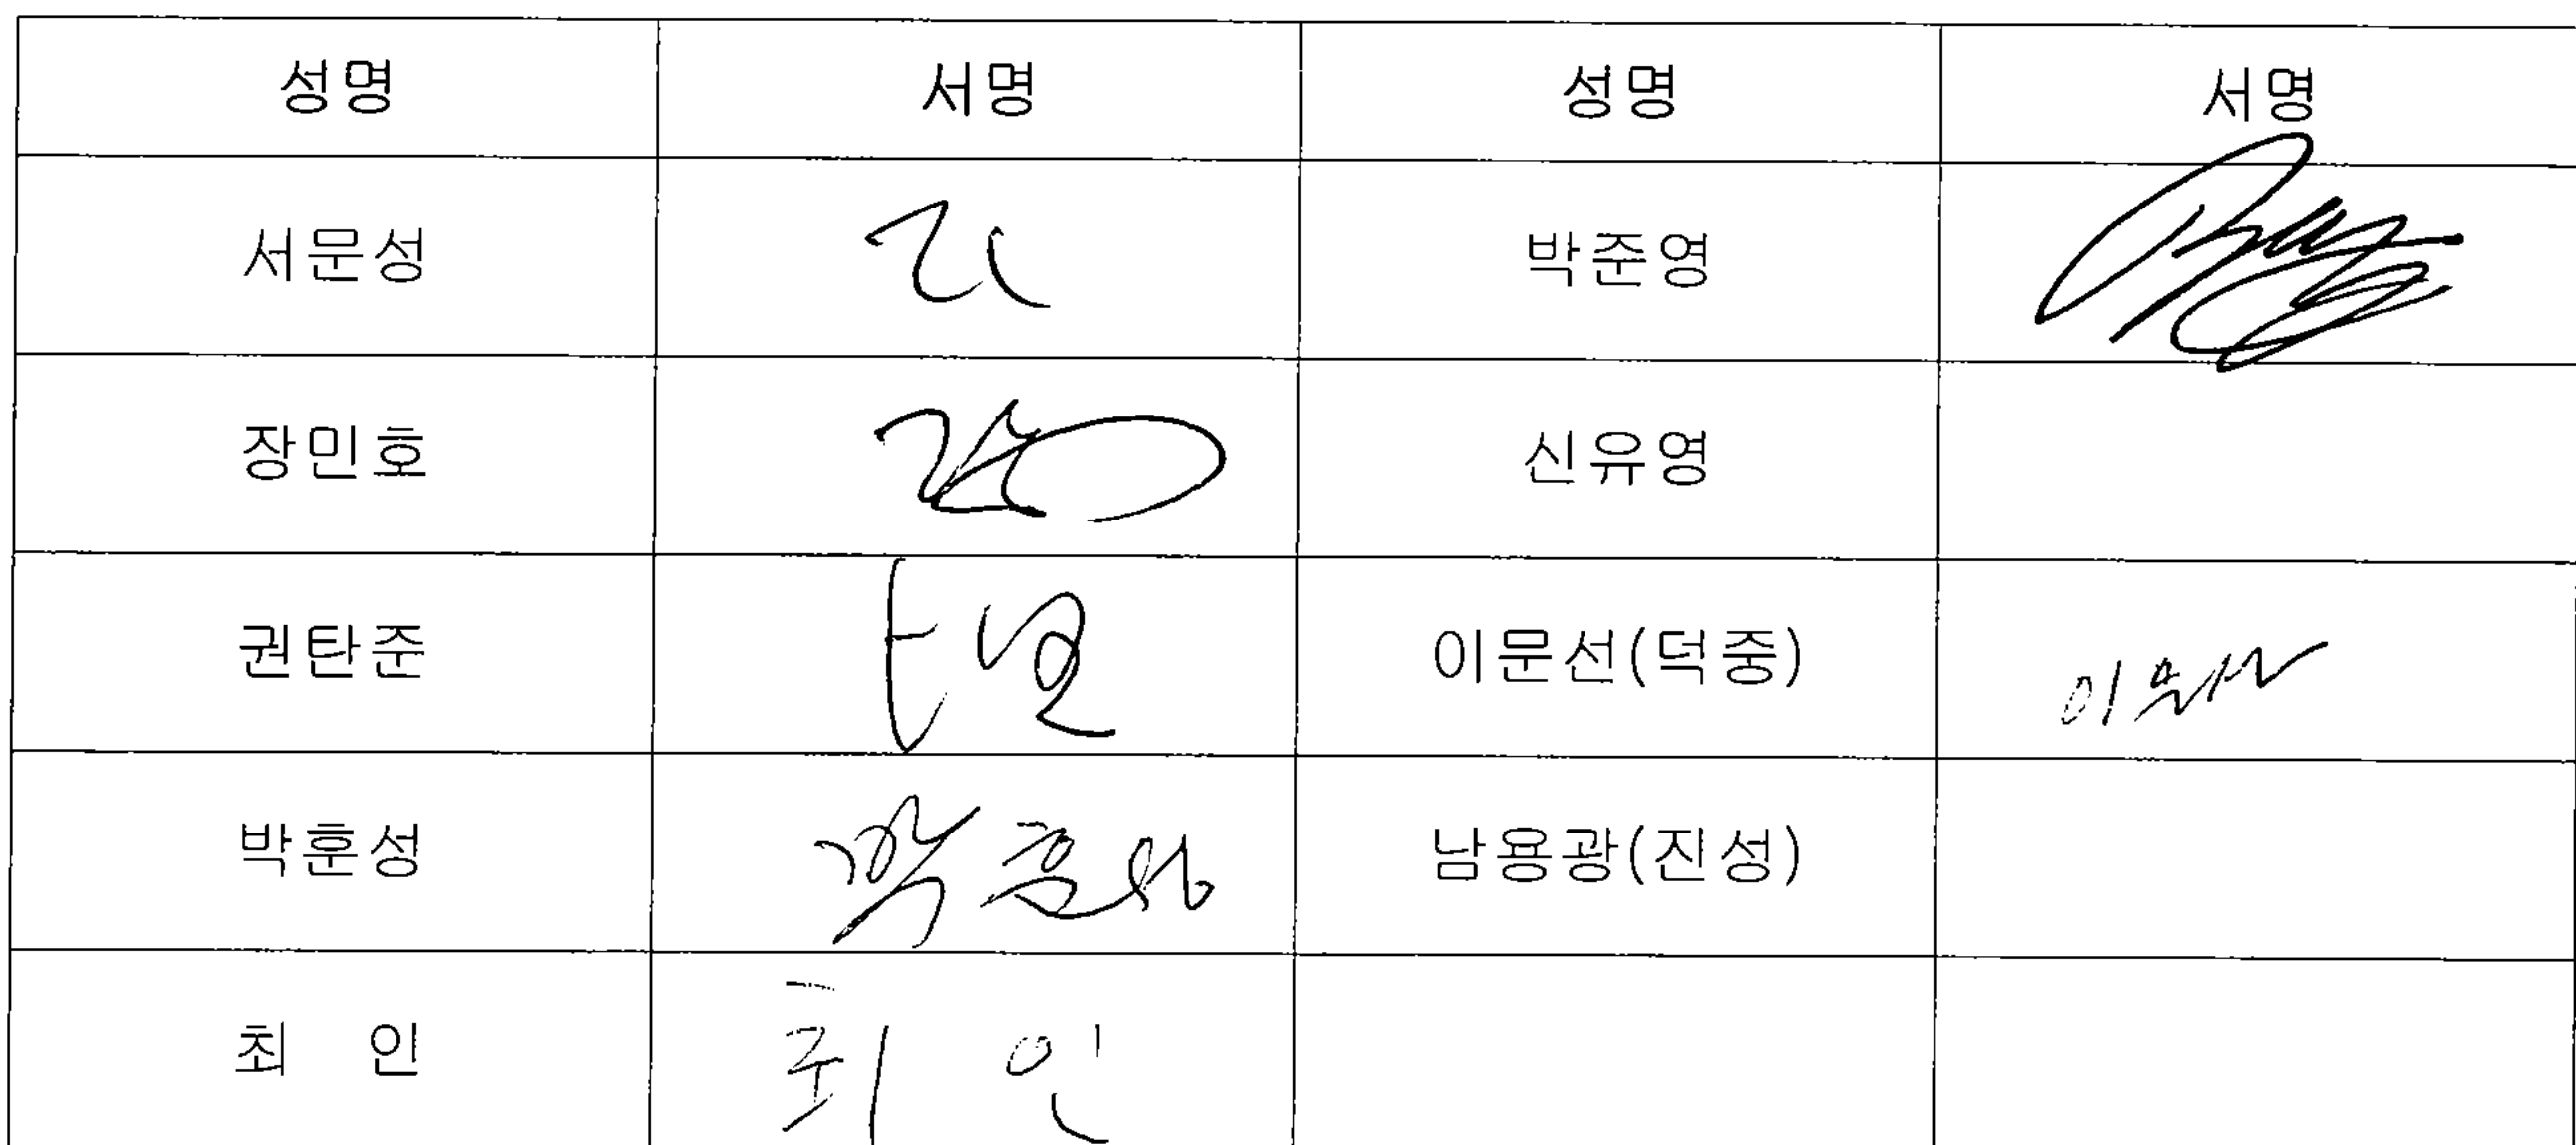 성명 서명 성명 서명
서문성 박준영
장민호 신유영
권탄준 이문선(덕중) 이문선
박훈성 박훈성 남용광(진성)
최 인 최 인